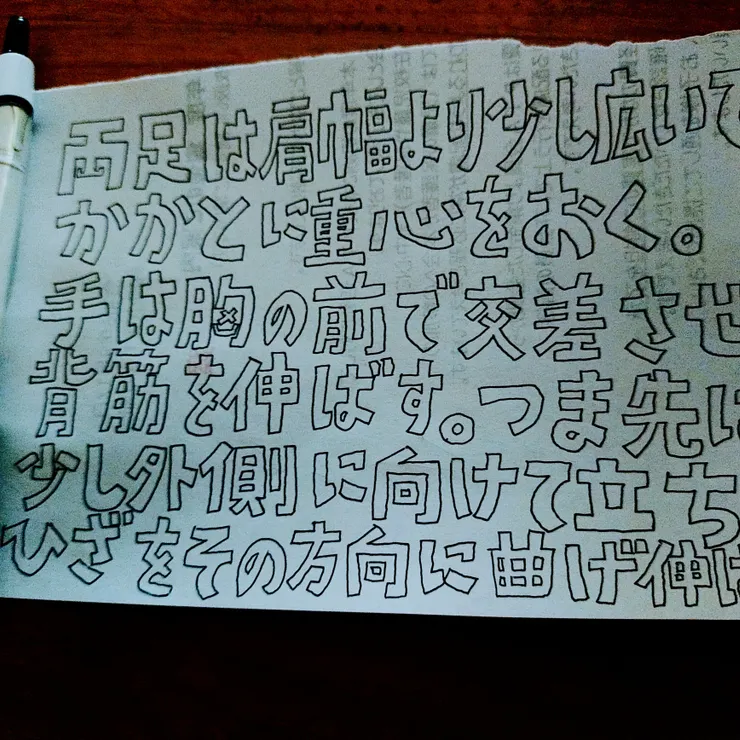 両足は肩幅より少し広いて
かかとに重心をおく。
手は胸の前で交差させ
背筋を伸ばす。つま先は
少し外側に向けて立ち
ひざをその方向に曲げ伸ば